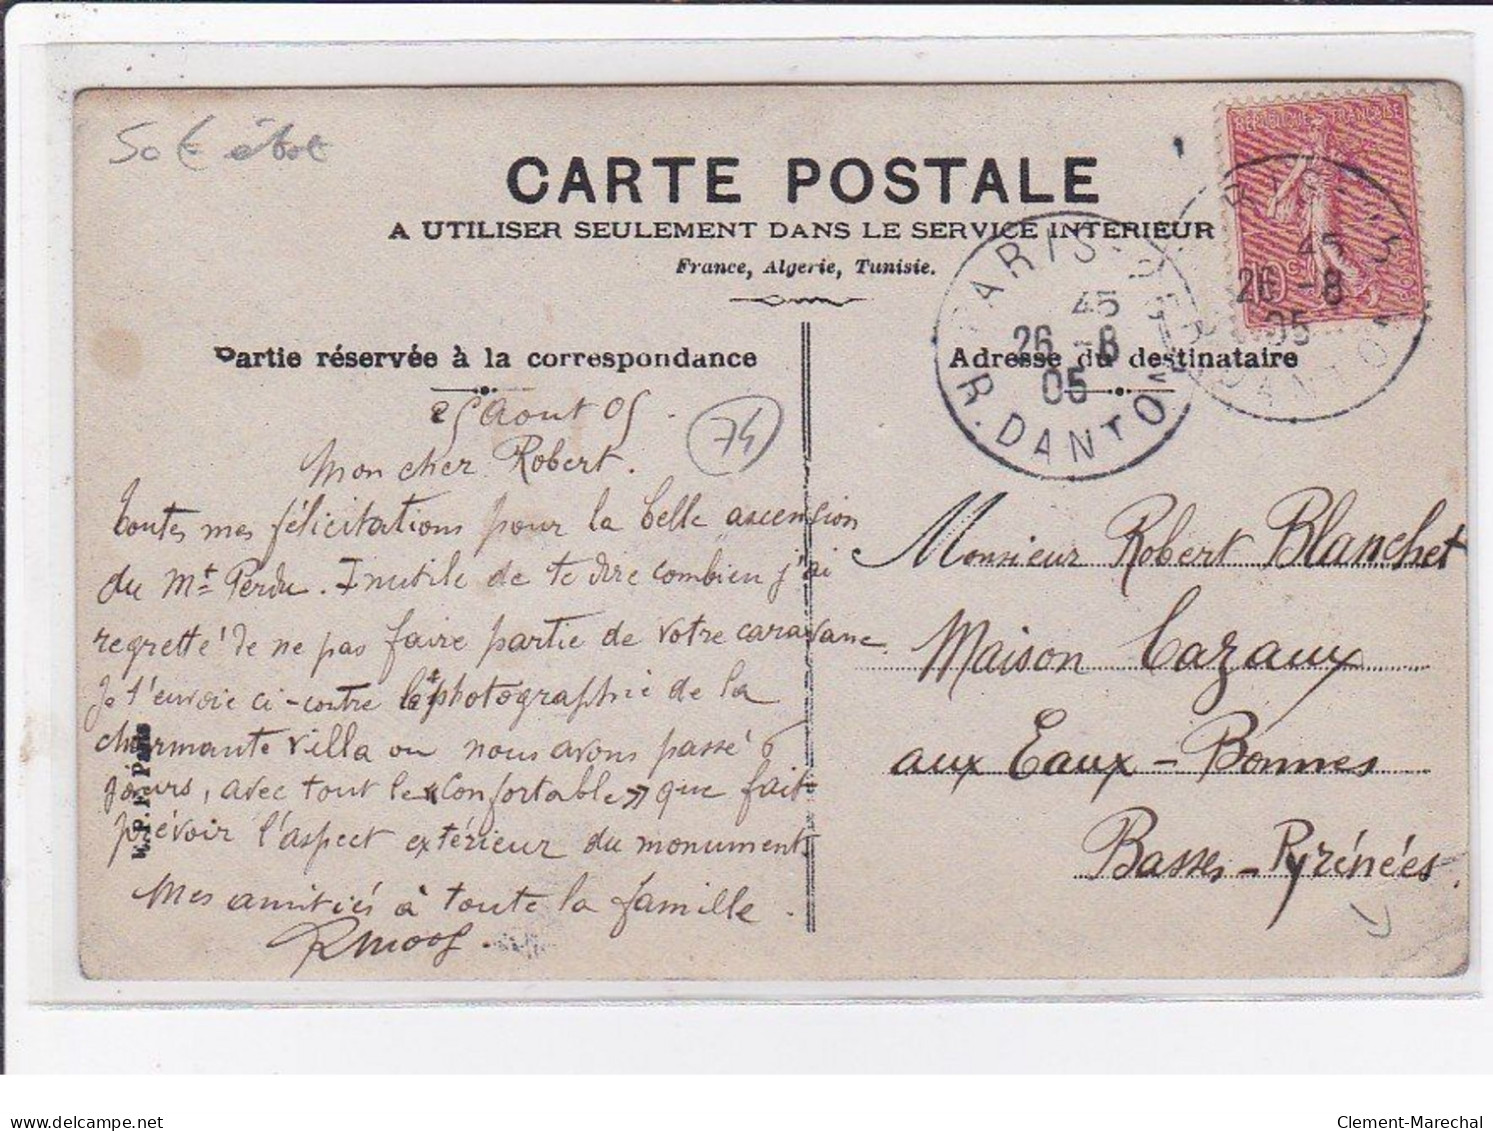 50 €
CARTE POSTALE
A UTILISER SEULEMENT DANS LE SERVICE INTERIEUR
France, Algerie, Tunisie.
REPUBLIQUE FRANÇAISE
10c
POSTES
45
26 -8
05
R. DANTON
PARIS
45
26 -8
05
R. DANTON
Partie réservée à la correspondance
25 Aout 05.
74
Mon cher Robert.
toutes mes félicitations pour la belle ascension
du Mt Perdu. Inutile de te dire combien j'ai
regretté de ne pas faire partie de votre caravane.
Je t'envoie ci-contre la photographie de la
charmante villa ou nous avons passé 6
jours, avec tout le «confortable» que fait
prévoir l'aspect extérieur du monument.
Mes amitiés à toute la famille.
P. F. Paris
Adresse du destinataire
Monsieur Robert Blanchet
Maison Cazaux
aux Eaux-Bonnes
Basses-Pyrénées.
www.delcampe.net
Clement-Marechal